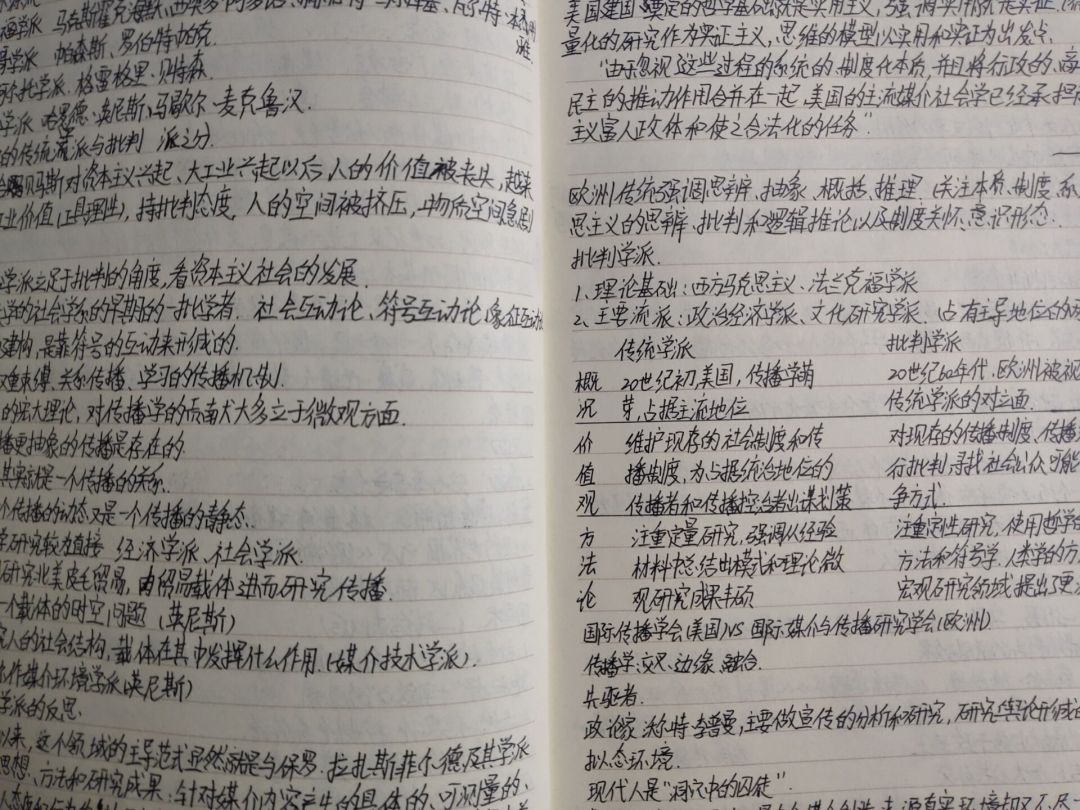 福学派 马克斯霍克海默、西奥多·阿多诺、
哥学派 帕森斯、罗伯特帕克
学派 格雷格里·贝特森
学派 哈罗德·英尼斯、马歇尔·麦克鲁汉
的传统流派与批判 派之分
贝马斯对资本主义兴起、大工业兴起以后,人的价值被丧失,越来
业价值(工具理性),持批判态度,人的空间被挤压,物质空间急剧
学派立足于批判的角度,看资本主义社会的发展
的社会学系的早期的一批学者. 社会互动论、符号互动论(象征互动
建构,是靠符号的互动来形成的.
重束缚、关系传播、学习的传播机制.
的宏大理论,对传播学的贡献大多立于微观方面
播更抽象的传播是存在的.
其实就是一个传播的关系.
个传播的动态又是一个传播的静态.
学研究较为直接 经济学派、社会学派.
研究北美皮毛贸易,由贸易载体进而研究传播.
一个载体的时空问题(英尼斯)
人的社会结构,载体在其中发挥什么作用.(媒介技术学派).
作媒介环境学派(英尼斯)
学派的反思.
以来,这个领域的主导范式显然就是与保罗·拉扎斯菲尔德及其学派
思想、方法和研究成果:针对媒介内容产生的具体的、可测量的、
美国建国 奠定的哲学基础就是实用主义,强调实用就是实证,
量化的研究作为实证主义,思维的模型以实用和实证为出发点.
“由于忽视这些过程的系统的、制度化本质,并且将行政的、商
民主的推动作用合并在一起,美国的主流媒介社会学已经承担
主义富人政体和使之合法化的任务”
欧洲传统强调思辨、抽象、概括、推理.(关注本质、制度、系
思主义的思辨、批判和逻辑推论以及制度关怀、意识形态.
批判学派.
1、理论基础:西方马克思主义、法兰克福学派
2、主要流派:政治经济学派、文化研究学派、占有主导地位的
传统学派 批判学派
概 20世纪初,美国,传播学萌 20世纪60年代,欧洲,被视
况 芽,占据主流地位 传统学派的对立面.
价 维护现存的社会制度和传 对现存的传播制度、传播
值 播制度,为占据统治地位的 行批判,寻找社会公众可能
观 传播者和传播控制者出谋划策 争方式.
方 注重定量研究,强调从经验 注重定性研究,使用哲学的
法 材料中总结出模式和理论,微 方法和符号学、人类学的方
论 观研究成果丰硕 宏观研究领域提出了更
国际传播学会(美国)VS 国际媒介与传播研究学会(欧洲)
传播学:交叉、边缘、融合.
先驱者.
政论家 沃尔特·李普曼,主要做宣传的分析和研究,研究舆论形成
拟态环境.
现代人是“洞穴中的囚徒”.